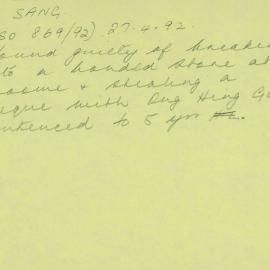 SANG
SO 869/92) 27.4.92.
ound guilty of breakin
to a bonded store at
oome & stealing a
eque with Ong Hing G
ntenced to 5 yrs